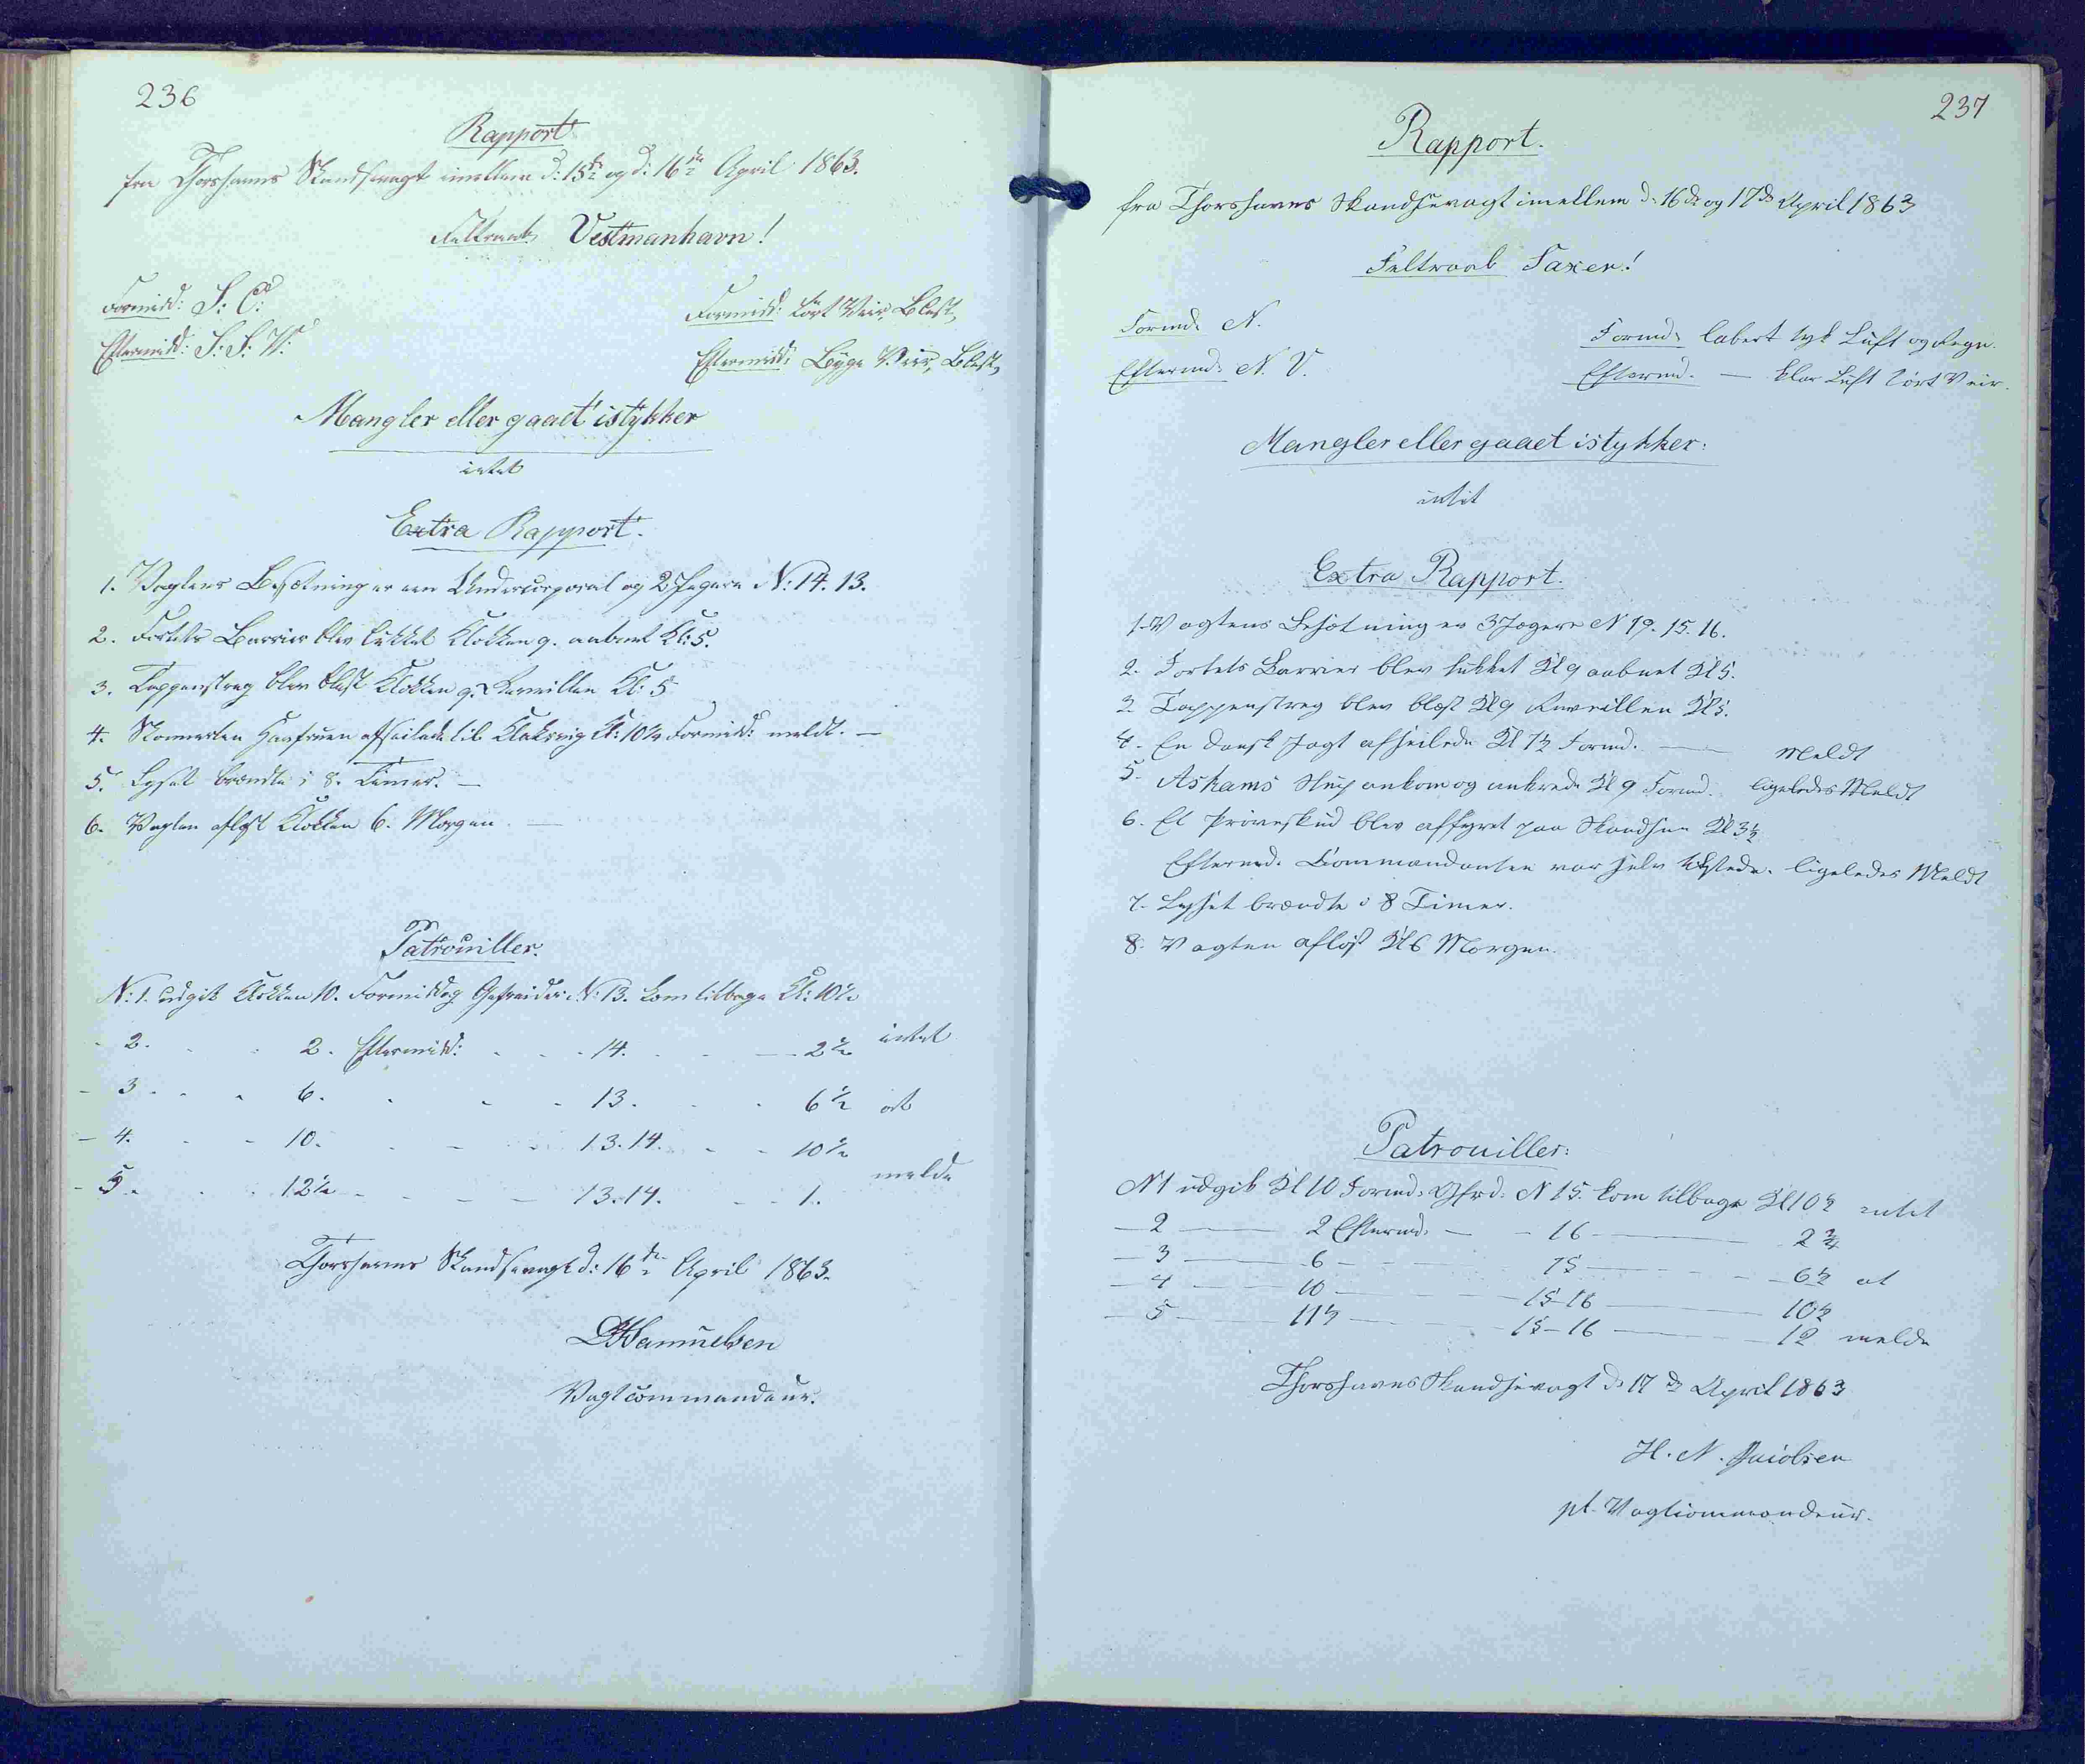 236
Rapport
fra Thorshavns Skandsevagt imellem d: 15de og d: 16de April 1863.
Feltraab Vestmanhavn!
Formidd: S: O:
Formidd: tört Veir, Blæst,
Eftermidd: S: S: V:
Eftermidd: Byge Veir, Blæst,
Mangler eller gaaet istykker
intet
Extra Rapport.
1. Vagtens Besætning er een Undercorporal og 2 Jægere N: 14. 13.
2. Fortets Barrier blev lukket Klokken 9. aabnet Kl: 5.
3. Tappenstreg blev blæst Klokken 9. Reveillen Kl: 5
4. Skonnerten Havfruen afseilede til Klaksvig Kl: 10½ Formidd: meldt. —
5. Lyset brændte i 8. Timer. —
6. Vagten aflöst Klokken 6. Morgen —
Patrouiller.
N: 1. udgik Klokken 10. Formiddag Gefreider N: 13. kom tilbage Kl: 10½
- 2. - - 2. Eftermidd: - - - 14. - - - 2½ intet
- 3 - - - 6. - - - 13. - - 6½ at
- 4. - - 10. - - - 13.14. - - 10½
- 5. - - 12½ - - - - 13.14. - - 1. melde
Thorshavns Skandsevagt d: 16de April 1863.
Samuelsen
Vagtcommandeur.
237
Rapport.
fra Thorshavns Skandsevagt imellem d: 16de og 17de April 1863
Feltraab Saxen!
Formd: N.
Formd: labert tyk Luft og Regn.
Eftermd: N. V.
Eftermd. — klar Luft tört Veir.
Mangler eller gaaet istykker:
intet
Extra Rapport.
1. Vagtens Besætning er 3 Jægere N 19. 15. 16.
2. Fortets Barrier blev lukket Kl 9 aabnet Kl 5.
3 Tappenstreg blev blæst Kl 9 Reveillen Kl 5.
4. En dansk Jagt afseilede Kl 7½ Formd. — Meldt
5. Askams Slup ankom og ankrede Kl 9 Formd. ligeledes Meldt
6. Et Pröveskud blev affyret paa Skandsen Kl 3½
Eftermd. Commandanten var selv tilstede. ligeledes Meldt
7. Lyset brændte i 8 Timer.
8. Vagten aflöst Kl 6 Morgen.
Patrouiller:
N 1 udgik Kl 10 Formd. Gfrd: N 15. kom tilbage Kl 10½ intet
— 2 — 2 Eftermd. — - 16 — 2¾
— 3 — 6 - - - 15 — - - 6½ at
— 4 — 10 — - - 15-16 — 10½
— 5 — 11½ — - - 15-16 — - - 12 melde
Thorshavns Skandsevagt d: 17de April 1863
H. N. Jacobsen
pt. Vagtcommandeur.